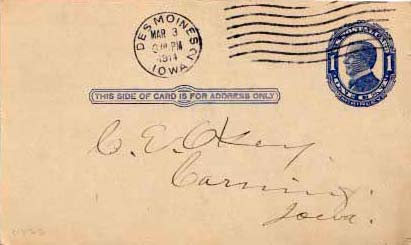 DES MOINES 2
MAR 3
PM
1914
IOWA
1 1
ONE CENT
THIS SIDE OF CARD IS FOR ADDRESS ONLY
C. E. Okey,
Corning,
Iowa.